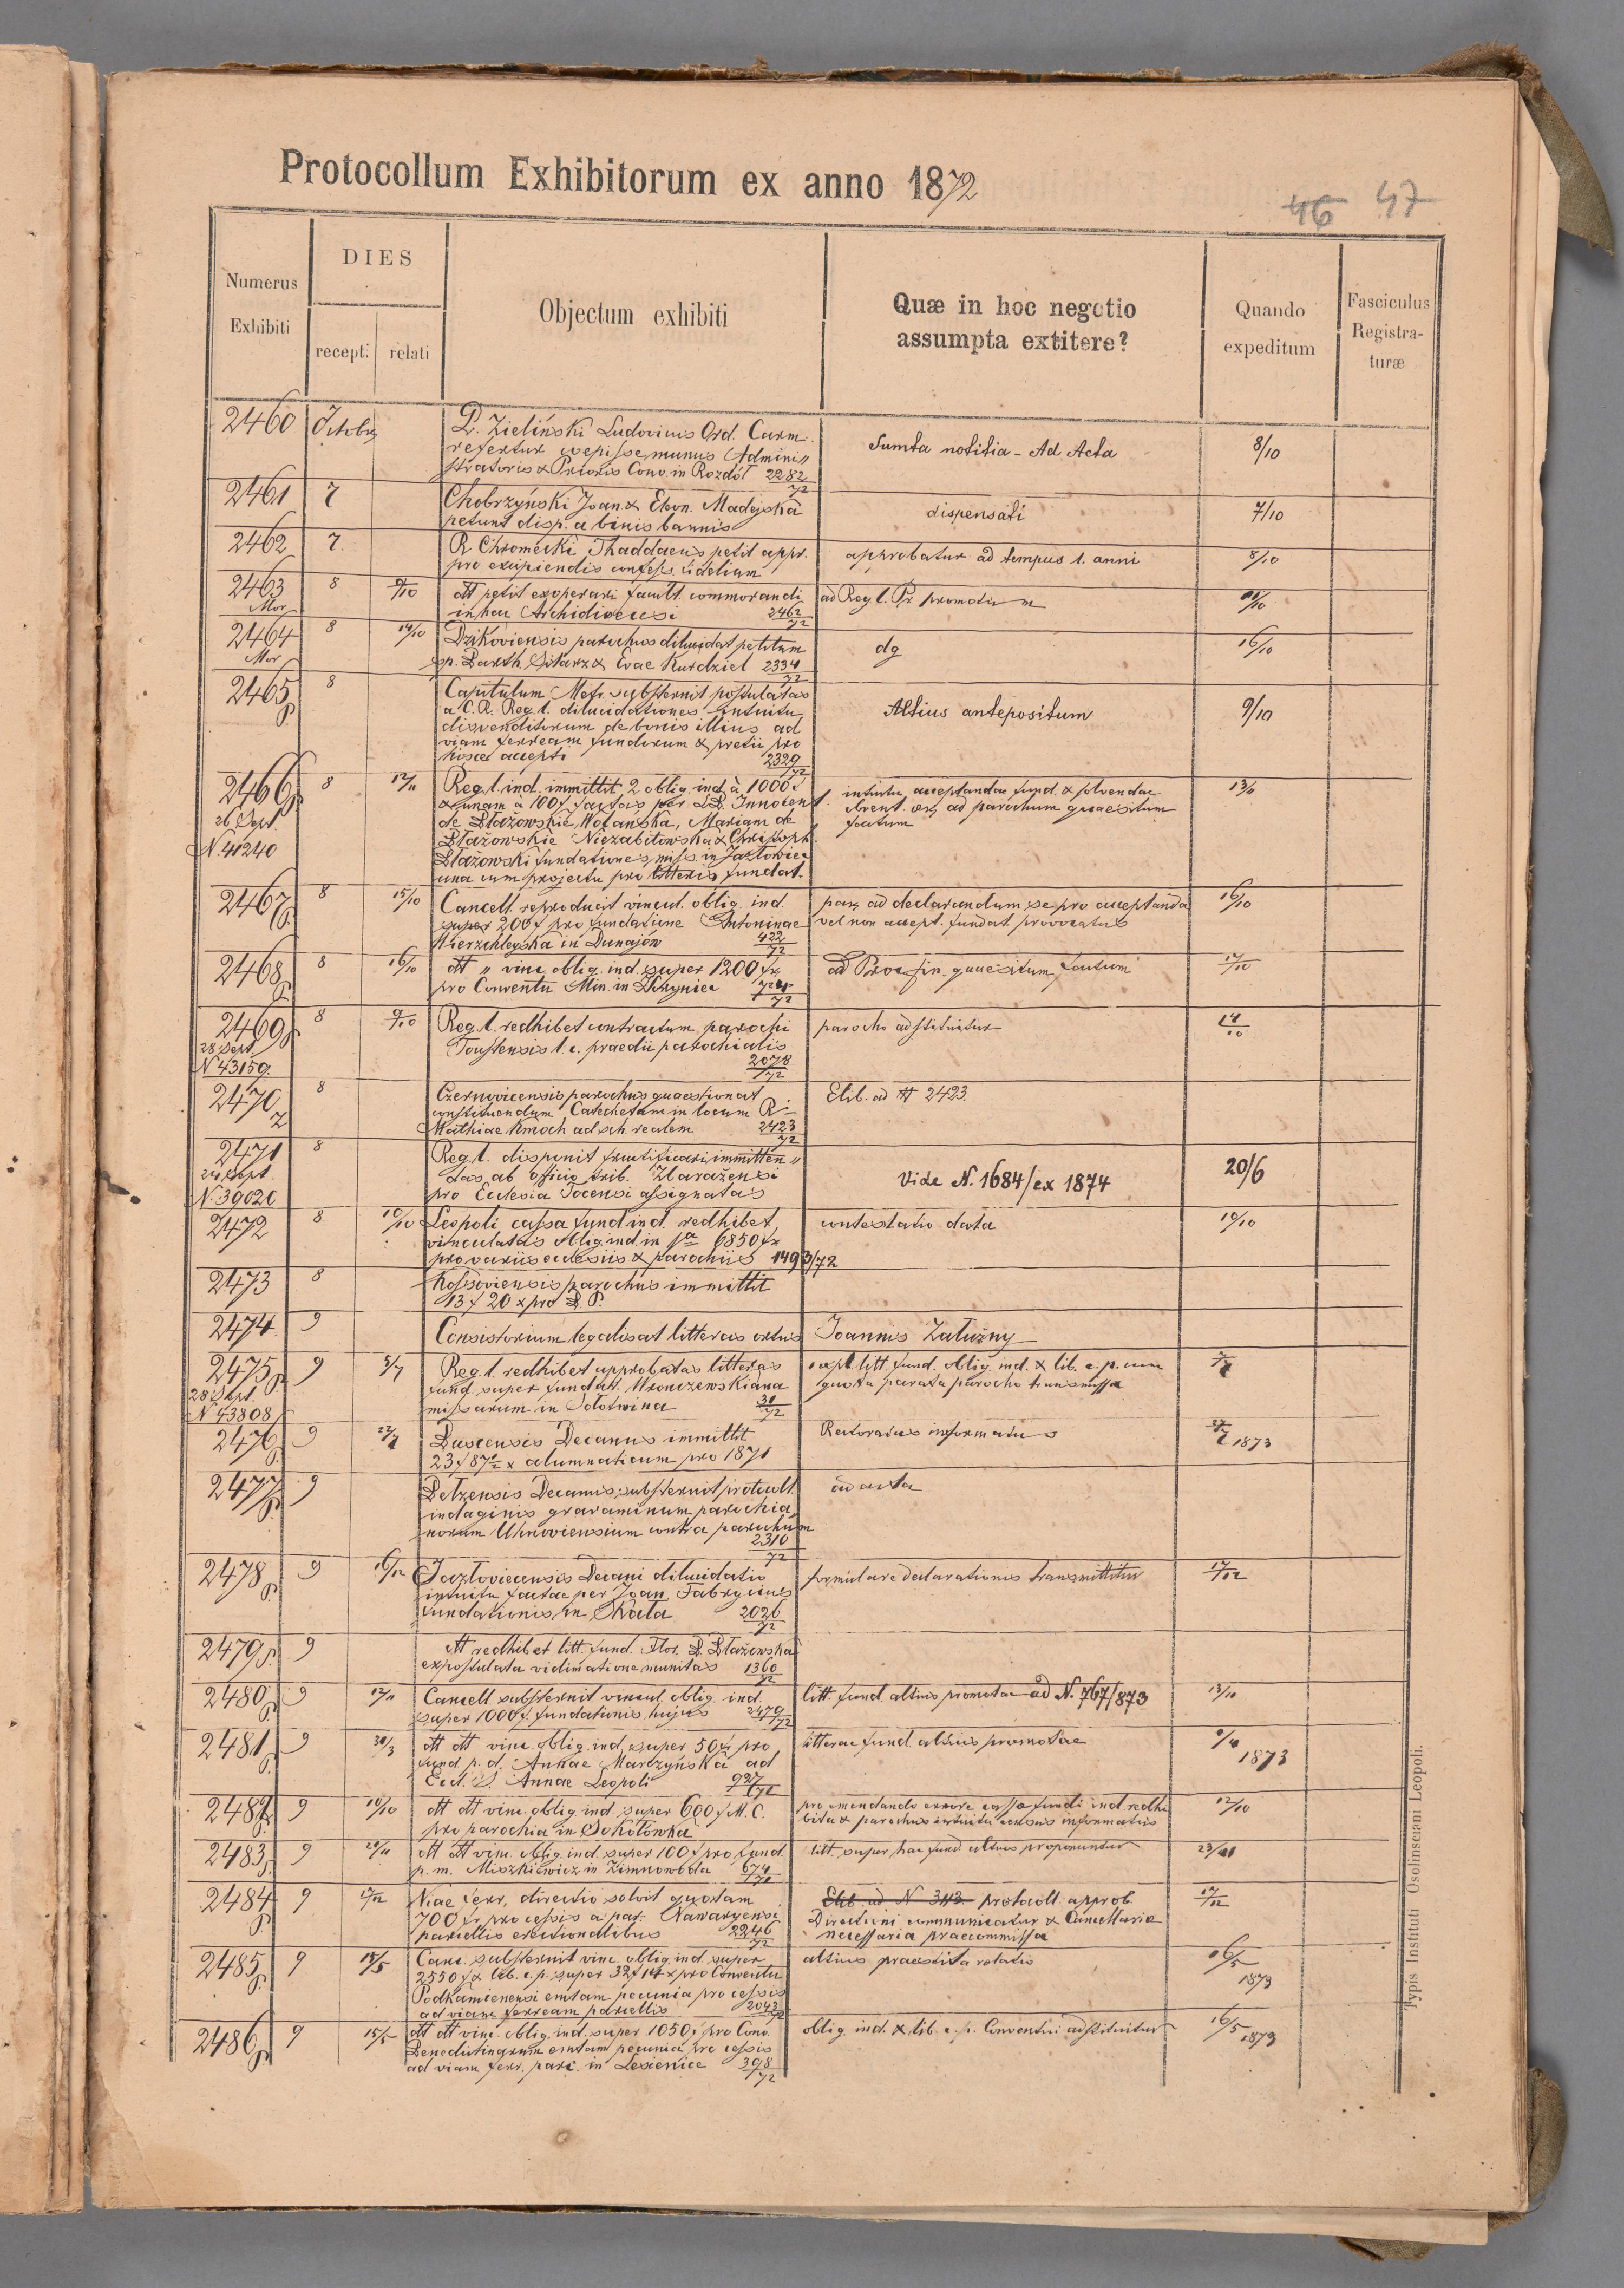 Protocollum Exhibitorum ex anno 1872
46 47
Numerus Exhibiti
DIES
recept: relati
Objectum exhibiti
Quæ in hoc negotio assumpta extitere?
Quando expeditum
Fasciculus Registra- turæ
2460 Octobr
P. Zieliński Ludovicus Ord. Carm.
refertur coepisse munus Admini„
stratoris & Prioris Conv. in Rozdół 2282/72
Sumta notitia - Ad Acta
8/10
2461 7
Chobrzyński Joan. & Eleon. Madejska
petunt disp. a binis bannis
dispensati
7/10
2462 7
R. Chromecki Thaddaeus petit appr.
pro excipiendis confess. fidelium
approbatur ad tempus 1. anni
8/10
2463 8 9/10
Mor
dtt petit exoperari facult. commorandi
in hac Archidioecesi 2462/72
ad Reg. l. Pr. promotum
2464 8 14/10
Mor
Dzikoviensis parochus dilucidat petitum
sp. Barth. Sitarz & Evae Kurdziel 2334/72
dg
16/10
2465 8
Capitulum Metr. substernit postulatas
a C. R. Reg. l. dilucidationes intuitu
disvenditorum de bonis illius ad
viam ferream fundorum & pretii pro
hisce accepti 2329/72
Altius antepositum
9/10
2466 8 12/11
26 Sept.
N. 41240
Reg. l. ind. immittit 2 oblig. ind. à 1000 f
& unam a 100 f factas per DD. Innocent.
de Błażowskie Wolańska, Mariam de
Błażowskie Niezabitowska & Christoph.
Błażowski fundationes miss. in Jazłowiec
una cum projectu pro litteris fundat.
intuitu acceptandae fund. & solvendae
ad parochum quaesitum
factum
2467 8 15/10
Cancell. reproducit vincul. oblig. ind.
super 200 f pro fundatione Antoninae
Wierzchleyska in Dunajów 422/72
par. ad declarandum se pro acceptanda
vel non accept. fundat. provocatus
16/10
2468 8 16/10
dtt „ vinc. oblig. ind. super 1200 fr
pro Conventu Min. in
ad Proc. fin. quaesitum factum
17/10
2469 8 9/10
28 Sept.
N 43159.
Reg. l. redhibet contractum parochi
Toustensis l. c. praedii parochialis
2078/72
parocho adstituitur
14/10
2470 8
Czernovicensis parochus quaestionat
constituendum Catechetam in locum R.
Mathiae Kmoch ad sch. realem 2423/72
Elib. ad N 2423
2471 8
24 Sept.
N. 39020
Reg. l. disponit fructificari immitten„
das ab officio trib. Zbaražensi
pro Ecclesia Tocensi assignatas
Vide N. 1684/ex 1874
20/6
2472 8 10/10
Leopoli cassa fund. ind. redhibet
vinculatas oblig. ind. in 6850 fr
pro variis ecclesiis & parochiis 1493/72
contestatio data
10/10
2473 8
Kossoviensis parochus immittit
13 f 20 x pro S. P.
2474 9
Consistorium legalisat litteras ortus Joannis Załužny
2475 9 5/7
28 Sept
N 43808
Reg. l. redhibet approbatas litteras
fund. super fundatt. Mronczewskiana
missarum in Sołotwina
litt. fund. oblig. ind. & lib. c. p. cum
quota parata parocho transmissa
2476 9
Buscensis Decanus immittit
23 f 87½ x alumnaticum pro 1871
Rectoratus informatus
1873
2477 9
Bełzensis Decanus substernit protcoll.
indaginis gravaminum parochia
norum Uhnoviensium contra parochum
2310/72
ad acta
2478 9 16/12
Jazłoviecensis Decani dilucidatio
intuitu factae per Joan. Fabrycius
fundationis in Skała 2026/72
formulare declarationis transmittitur
17/12
2479 9
dtt redhibet litt. fund. Flor. D. Błażewska
expostulata vidimatione munitas 1360/72
2480 9 12/11
Cancell. substernit vincul. oblig. ind.
super 1000 f. fundationis hujus 2479/72
litt. fund. altius promotae ad N. 767/873
13/10
2481 9 30/3
dtt dtt vinc. oblig. ind. super 50 fr pro
fund. p. d. Annae Marczyńska ad
Eccl. S. Annae Leopoli 927/72
litterae fund. altius promotae
1873
2482 9 10/10
dtt dtt vinc. oblig. ind. super 600 f M. C.
pro parochia in Sokołówka
pro emendando errore cassae fundi ind. redhi
bita & parochus intuitu informatus
12/10
2483 9 20/11
dtt dtt vinc. oblig. ind. super 100 f pro fund.
p. m. Miszkiewicz in Zimnowódka 674/72
litt. super hac fund. altius proponuntur
23/11
2484 9
Viae ferr. directio solvit quotam
700 fr pro cessis a par. Nawaryensi
parcellis erectionalibus 2246/72
Elib. ad N 3113 protocoll. approb.
Directioni communicatur & Cancellariae
necessaria praecommissa
17/12
2485 9 15/5
Canc. substernit vinc. oblig. ind. super
2550 f & lib. c. p. super 32 f 14 x pro Conventu
Podkamenensi emtam pecunia pro cessis
ad viam ferream parcellis 2043/72
altius praestita relatio
16/5
1873
2486 9 15/5
dtt dtt vinc. oblig. ind. super 1050 f pro Conv.
Benedictinarum emtam pecunia pro cessis
ad viam ferr. parc. in Lesienice 398/72
oblig. ind. & lib. c. p. Conventui adstituitur
16/5 1873
Typis Instituti Ossolinsciani Leopoli.